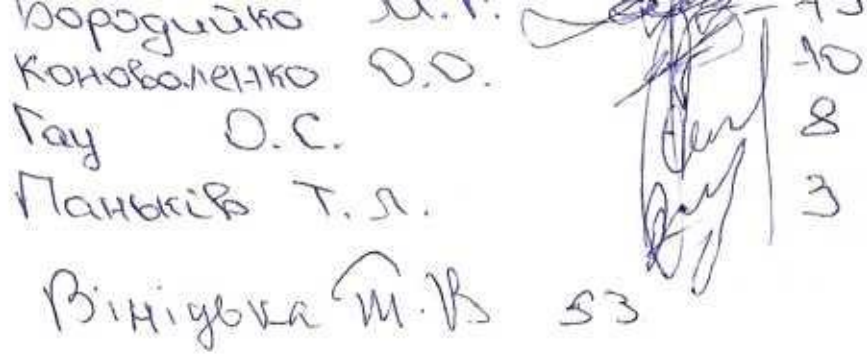 Бородийко М.Г.
Коноваленко О.О. 10
Гау О.С. 8
Паньків Т.Л. 3
Вінідька Т.В 53